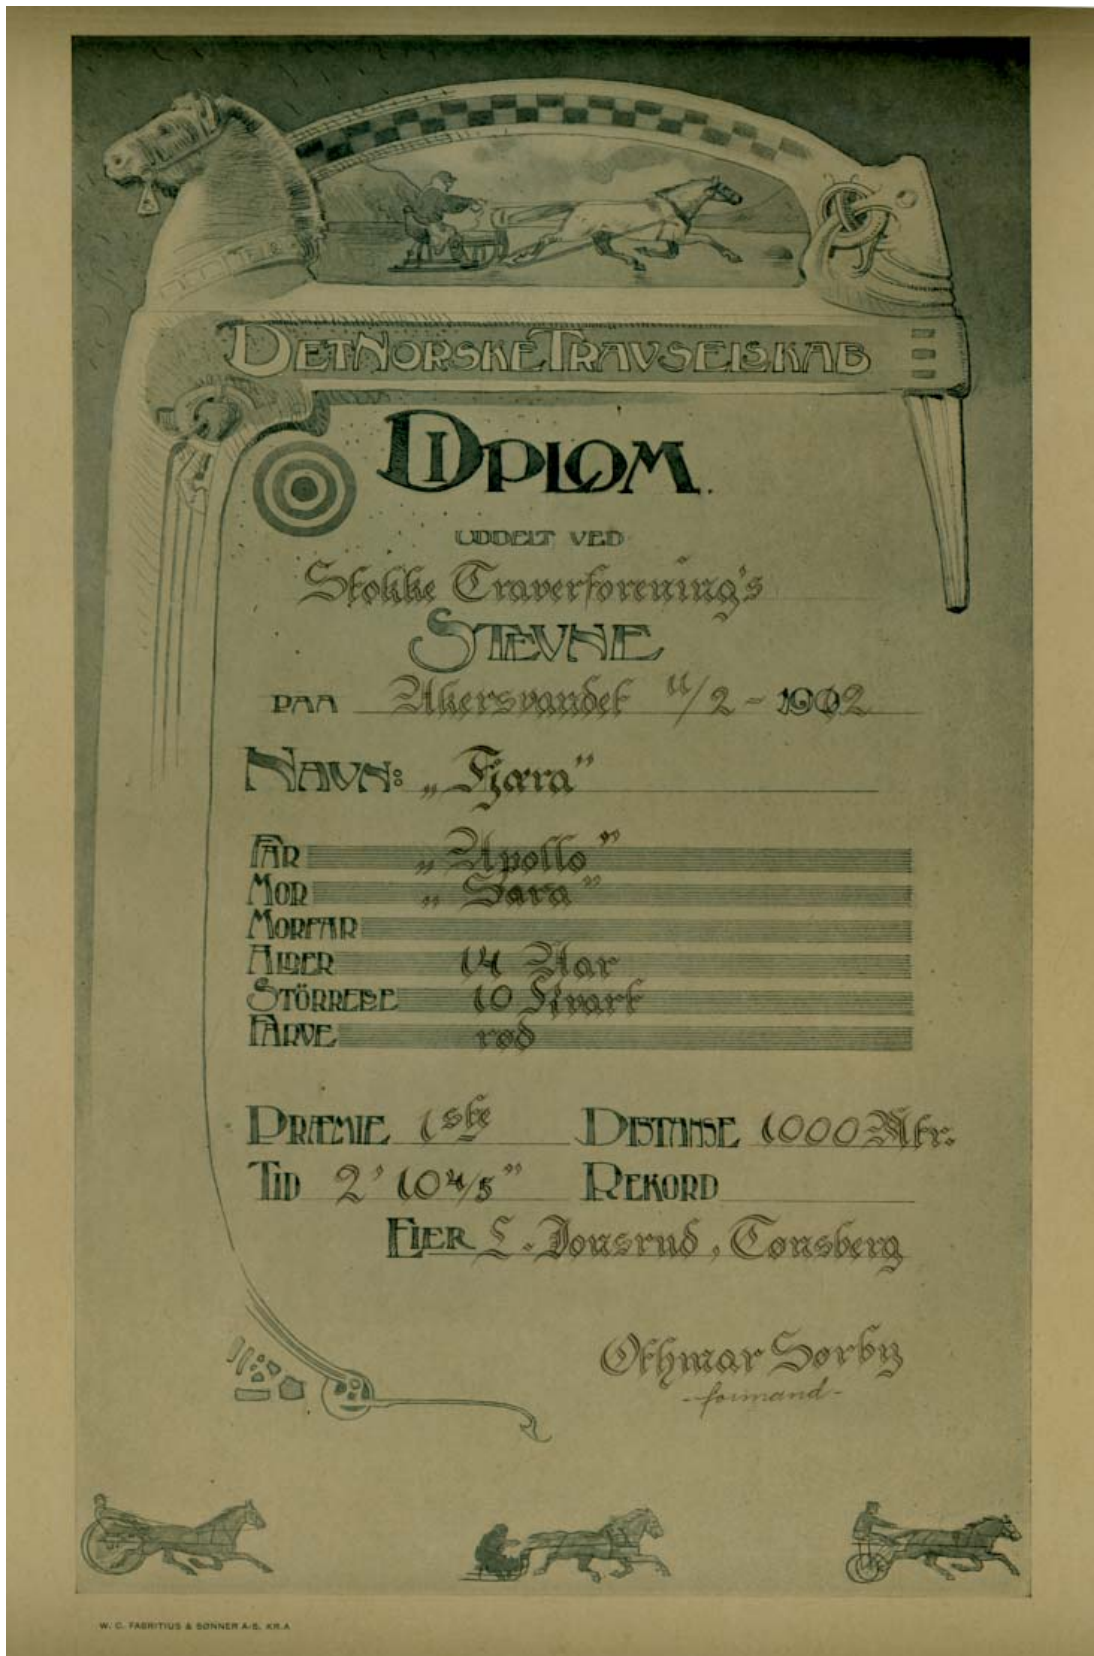 DET NORSKE TRAVSELSKAB
DIPLOM.
UDDELT VED
Stokke Traverforening's
STEVNE
PAA Akersvandet 11/2 - 1902
NAVN: „Fjæra"
FAR „Apollo"
MOR „Sara"
MORFAR
ALDER 14 Aar
STÖRRELSE 10 Kvart
FARVE rød
PRÆMIE 1ste DISTANSE 1000 Mtr.
TID 2' 10 4/5" REKORD
EIER L. Jonsrud, Tønsberg
Othmar Sørby
- formand -
W. C. FABRITIUS & SØNNER A-S, KR.A